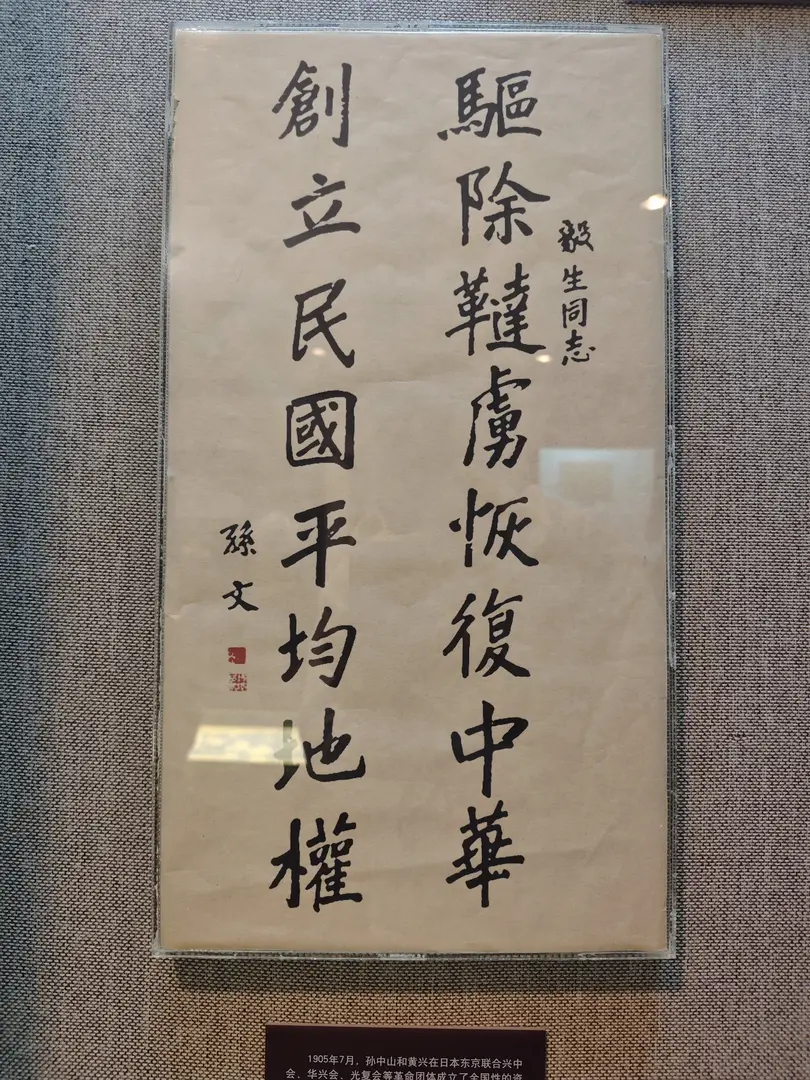 毅生同志
驅除韃虜恢復中華
創立民國平均地權
孫文
1905年7月，孙中山和黄兴在日本东京联合兴中
会、华兴会、光复会等革命团体成立了全国性的资